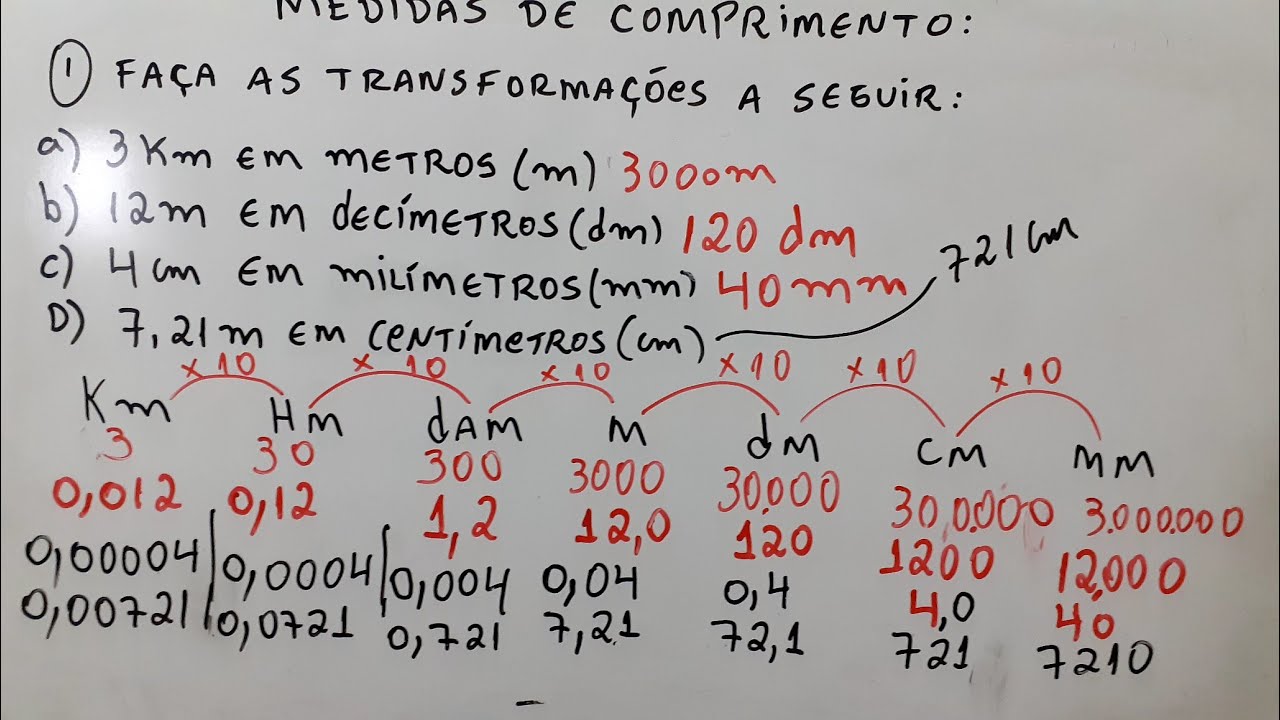 MEDIDAS DE COMPRIMENTO:
1 FAÇA AS TRANSFORMAÇÕES A SEGUIR:
a) 3 Km EM METROS (m) 3000m
b) 12m EM DECÍMETROS (dm) 120 dm
c) 4 cm EM MILÍMETROS (mm) 40 mm
D) 7,21m EM CENTÍMETROS (cm) 721 cm
x 10 x 10 x 10 x 10 x 10 x 10
Km Hm dAM M dM CM MM
3 30 300 3000 30.000 300.000 3.000.000
0,012 0,12 1,2 12,0 120 1200 12.000
0,00004 0,0004 0,004 0,04 0,4 4,0 40
0,00721 0,0721 0,721 7,21 72,1 721 7210